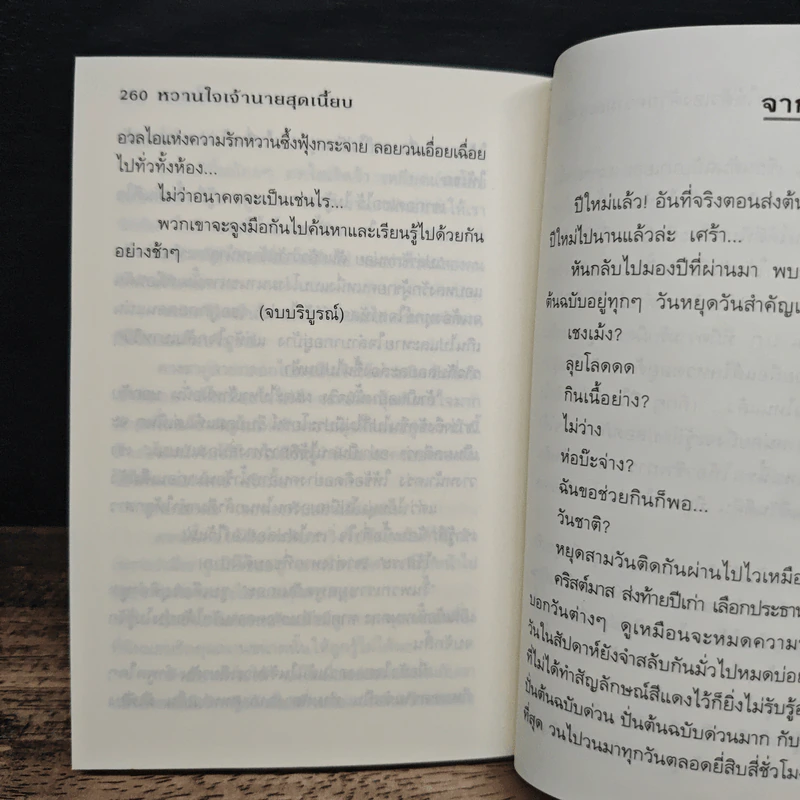 260 หวานใจเจ้านายสุดเนี้ยบ
อวลไอแห่งความรักหวานซึ้งฟุ้งกระจาย ลอยวนเอื่อยเฉื่อย
ไปทั่วทั้งห้อง...
ไม่ว่าอนาคตจะเป็นเช่นไร...
พวกเขาจะจูงมือกันไปค้นหาและเรียนรู้ไปด้วยกัน
อย่างช้าๆ
(จบบริบูรณ์)
จาก
ปีใหม่แล้ว! อันที่จริงตอนส่งต้น
ปีใหม่ไปนานแล้วล่ะ เศร้า...
หันกลับไปมองปีที่ผ่านมา พบ
ต้นฉบับอยู่ทุกๆ วันหยุดวันสำคัญ
เชงเม้ง?
ลุยโลดดด
กินเนื้อย่าง?
ไม่ว่าง
ห่อบ๊ะจ่าง?
ฉันขอช่วยกินก็พอ...
วันชาติ?
หยุดสามวันติดกันผ่านไปไวเหมือ
คริสต์มาส ส่งท้ายปีเก่า เลือกประธาน
บอกวันต่างๆ ดูเหมือนจะหมดความ
วันในสัปดาห์ยังจำสลับกันมั่วไปหมดบ่อย
ที่ไม่ได้ทำสัญลักษณ์สีแดงไว้ก็ยิ่งไม่รับรู้
ปั่นต้นฉบับด่วน ปั่นต้นฉบับด่วนมาก กับ
ที่สุด วนไปวนมาทุกวันตลอดยี่สิบสี่ชั่วโม